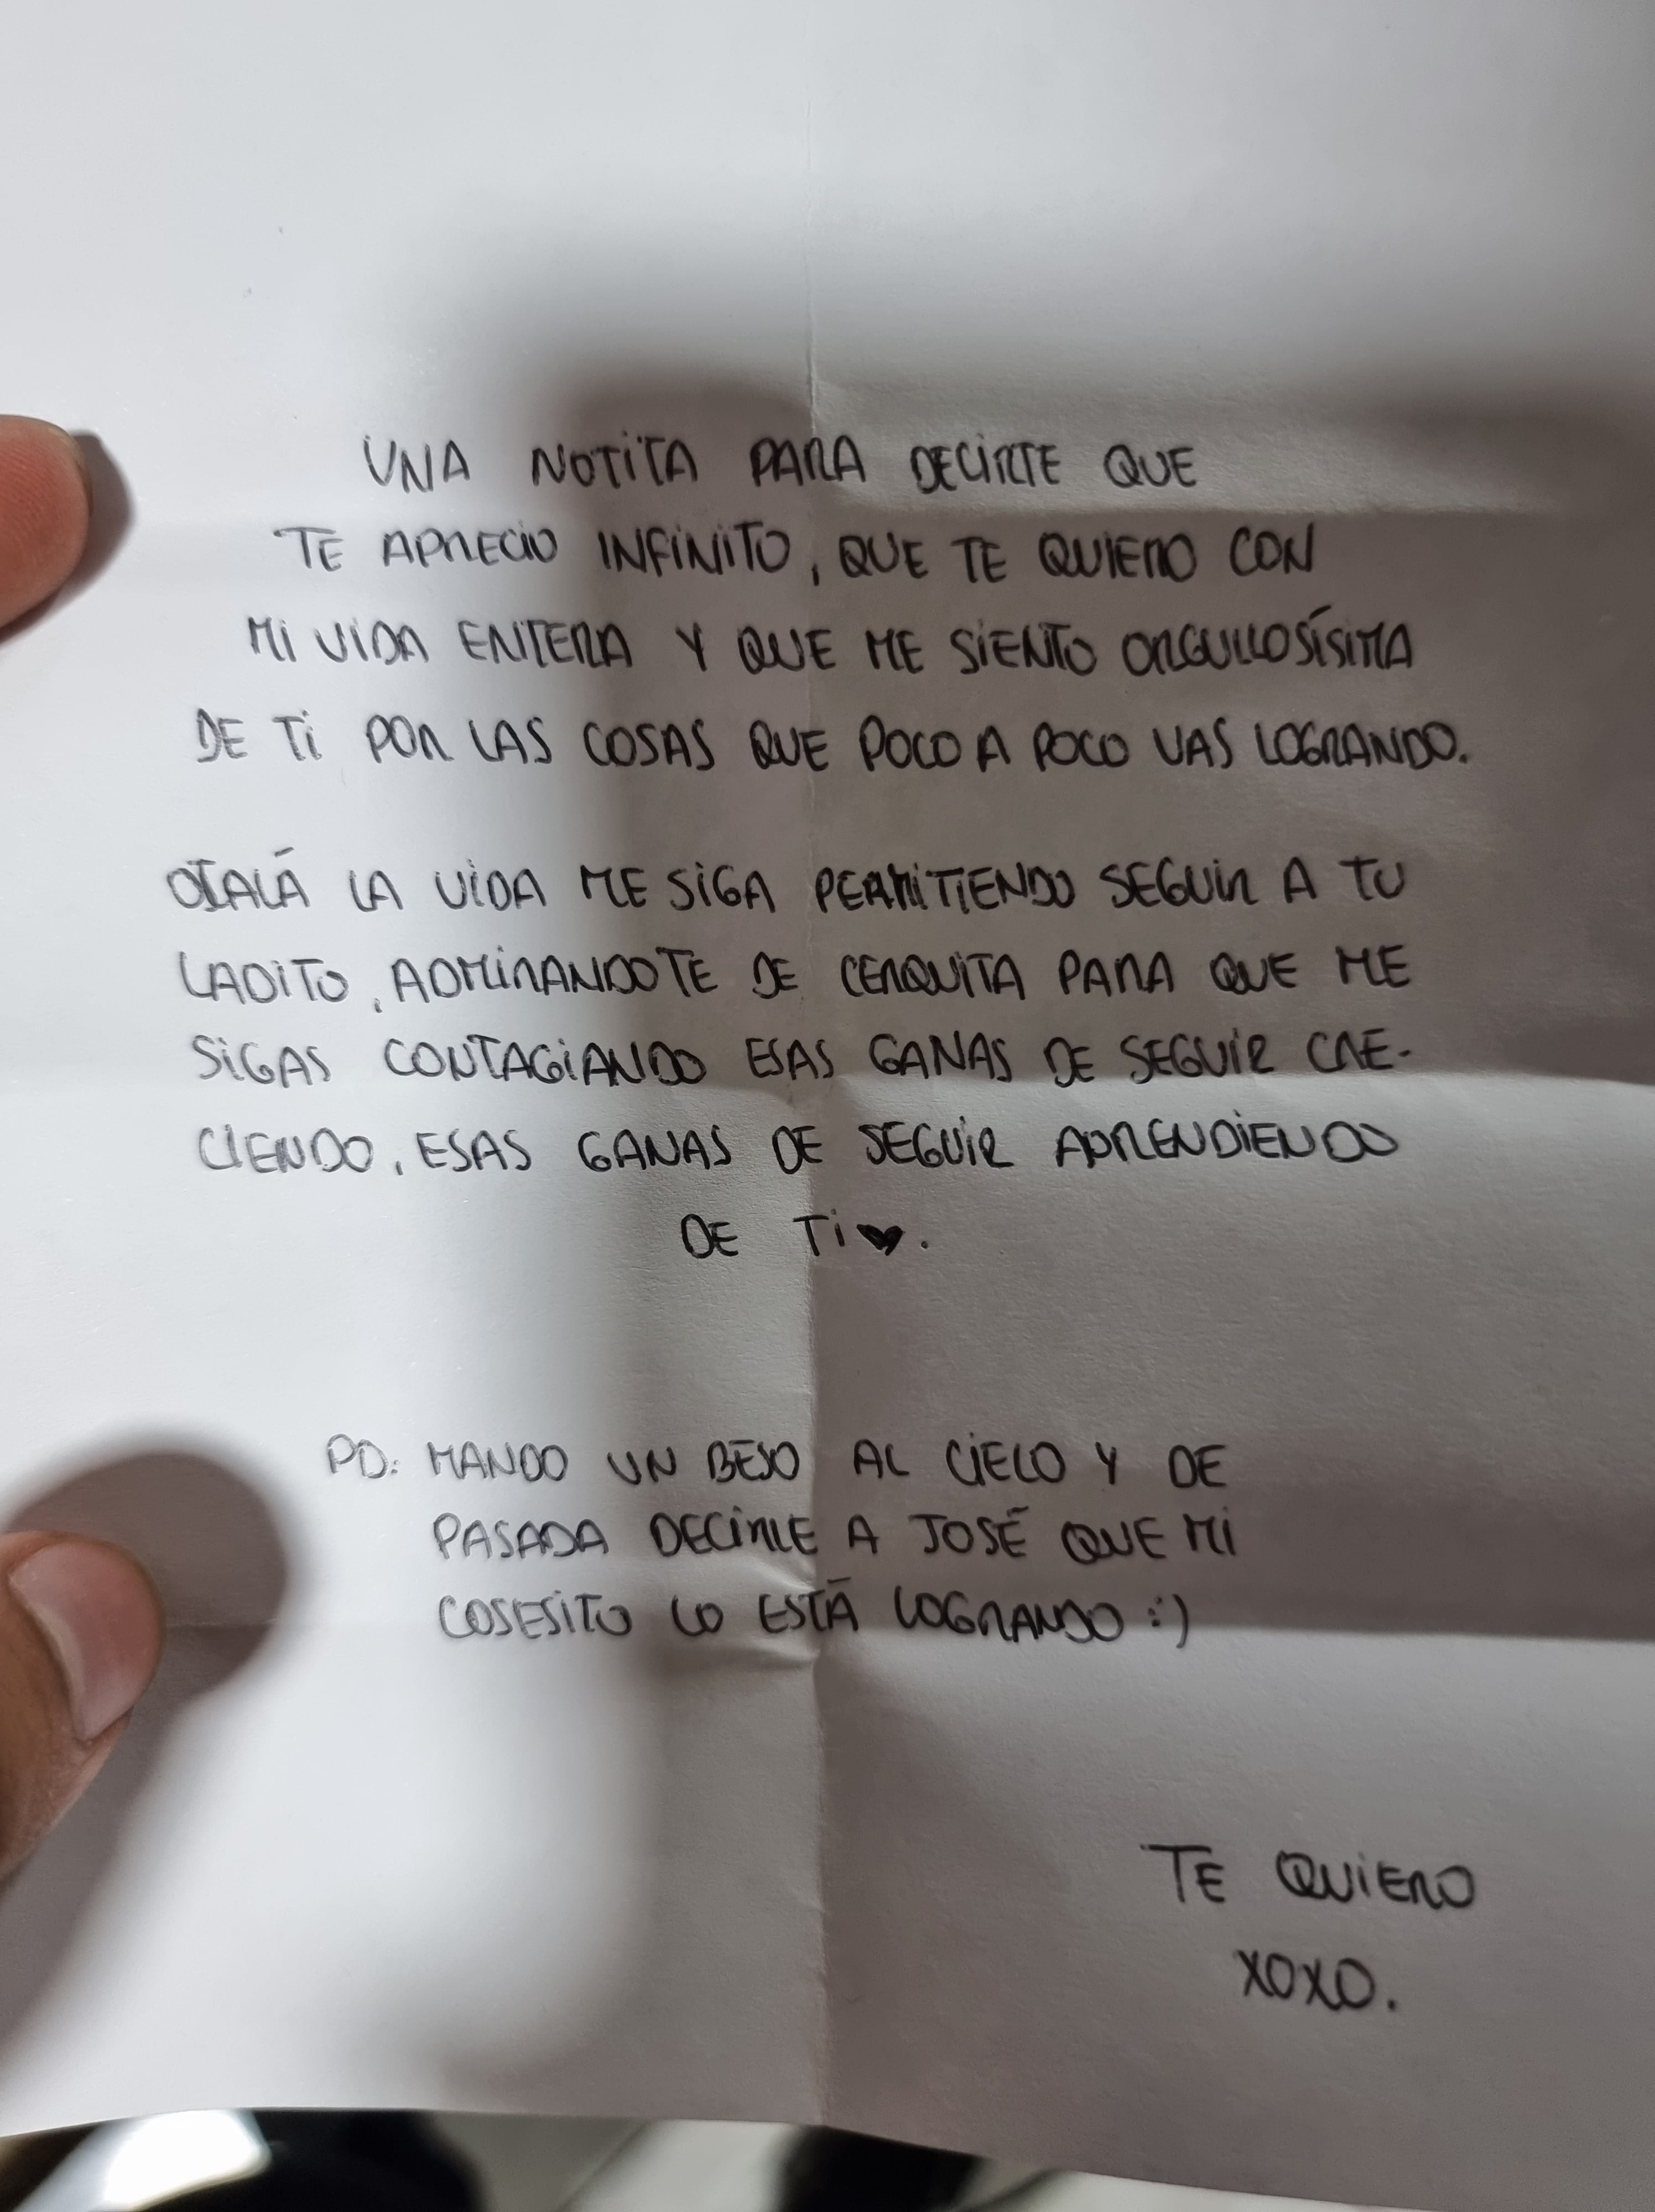 UNA NOTITA PARA DECIRTE QUE
TE APRECIO INFINITO, QUE TE QUIERO CON
MI VIDA ENTERA Y QUE ME SIENTO ORGULLOSÍSIMA
DE TI POR LAS COSAS QUE POCO A POCO VAS LOGRANDO.
OJALÁ LA VIDA ME SIGA PERMITIENDO SEGUIR A TU
LADITO, ADMIRANDOTE DE CERQUITA PARA QUE ME
SIGAS CONTAGIANDO ESAS GANAS DE SEGUIR CRE-
CIENDO, ESAS GANAS DE SEGUIR APRENDIENDO
DE TI♥.
PD: MANDO UN BESO AL CIELO Y DE
PASADA DECIRLE A JOSÉ QUE MI
COSESITO LO ESTÁ LOGRANDO :')
TE QUIERO
XOXO.